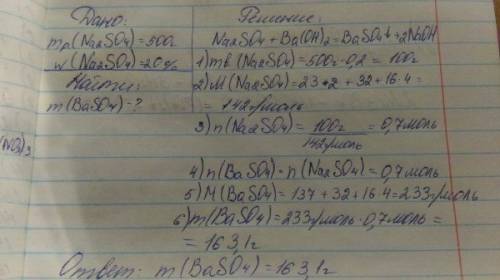 Дано:
mр(Na2SO4)=500г
w(Na2SO4)=20%
Найти:
m(BaSO4)-?
Решение:
Na2SO4+Ba(OH)2=BaSO4↓+2NaOH
1) mв(Na2SO4)=500г·0,2=100г
2) M(Na2SO4)=23·2+32+16·4=
=142г/моль
3) n(Na2SO4)=100г/142г/моль=0,7моль
4) n(BaSO4)=n(Na2SO4)=0,7моль
5) M(BaSO4)=137+32+16·4=233г/моль
6) m(BaSO4)=233г/моль·0,7моль=
=163,1г
Ответ: m(BaSO4)=163,1г
(NO3)3